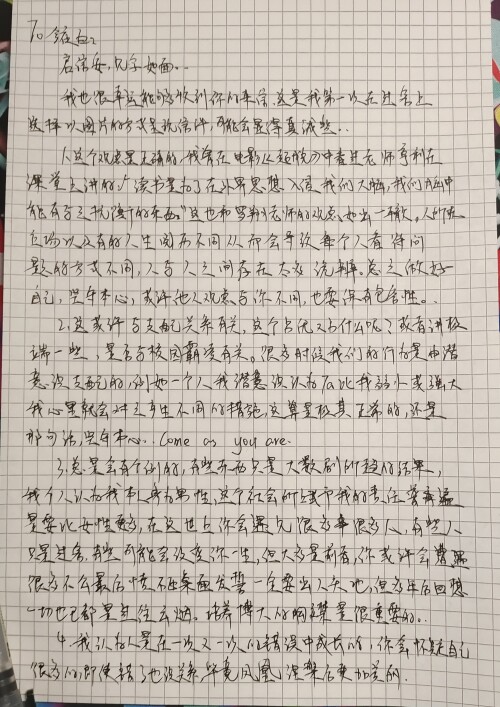 To
启信安，见字如面..
我也很幸运能够收到你的来信，这是我第一次在过年上
这样以图片的方式呈现信件，可能会显得真诚些..
1.这个观点是正确的，我曾在电影《超脱》中看过老师亨利在
课堂上讲的，"读书是为了在外界思想入侵我们大脑，我们脑中
能有与之抗衡的东西。"这也和罗翔老师的观点如出一辙，人所在
立场以及有的人生阅历不同从而会导致每个人看待问
题的方式不同，人与人之间存在太多诡辩。总之做好
自己，坚守本心，或许他人观点与你不同，也要保有包容性。.
2.这或许与支配关系有关，这个占优又为什么呢？或者讲极
端一些，是否与校园霸凌有关。很多时候我们的行为是由潜
意识支配的，例如一个人我潜意识认为Ta比我弱小或强大
我心里就会对之产生不同的措施，这算是极其正常的，还是
那句话，坚守本心.. Come as you are.
3.总是会有个例的，有些东西只是大数剧所趋的结果，
我个人认为我本身为男性，这个社会所赋予我的责任普遍
是要比女性更多，在这世上你会遇见很多事很多人，有些人
只是过客，有些可能会改变你一生，但大多是前者，你或许会遭遇
很多不公最后愤不由衷而发誓一定要出人头地，但多年后回想
一切也已都是过往云烟。培养博大的胸襟是很重要的..
4.我认为人是在一次又一次的错误中成长的，你会怀疑自己
很多的，即使错了也没关系，毕竟凤凰涅槃后更加美的.